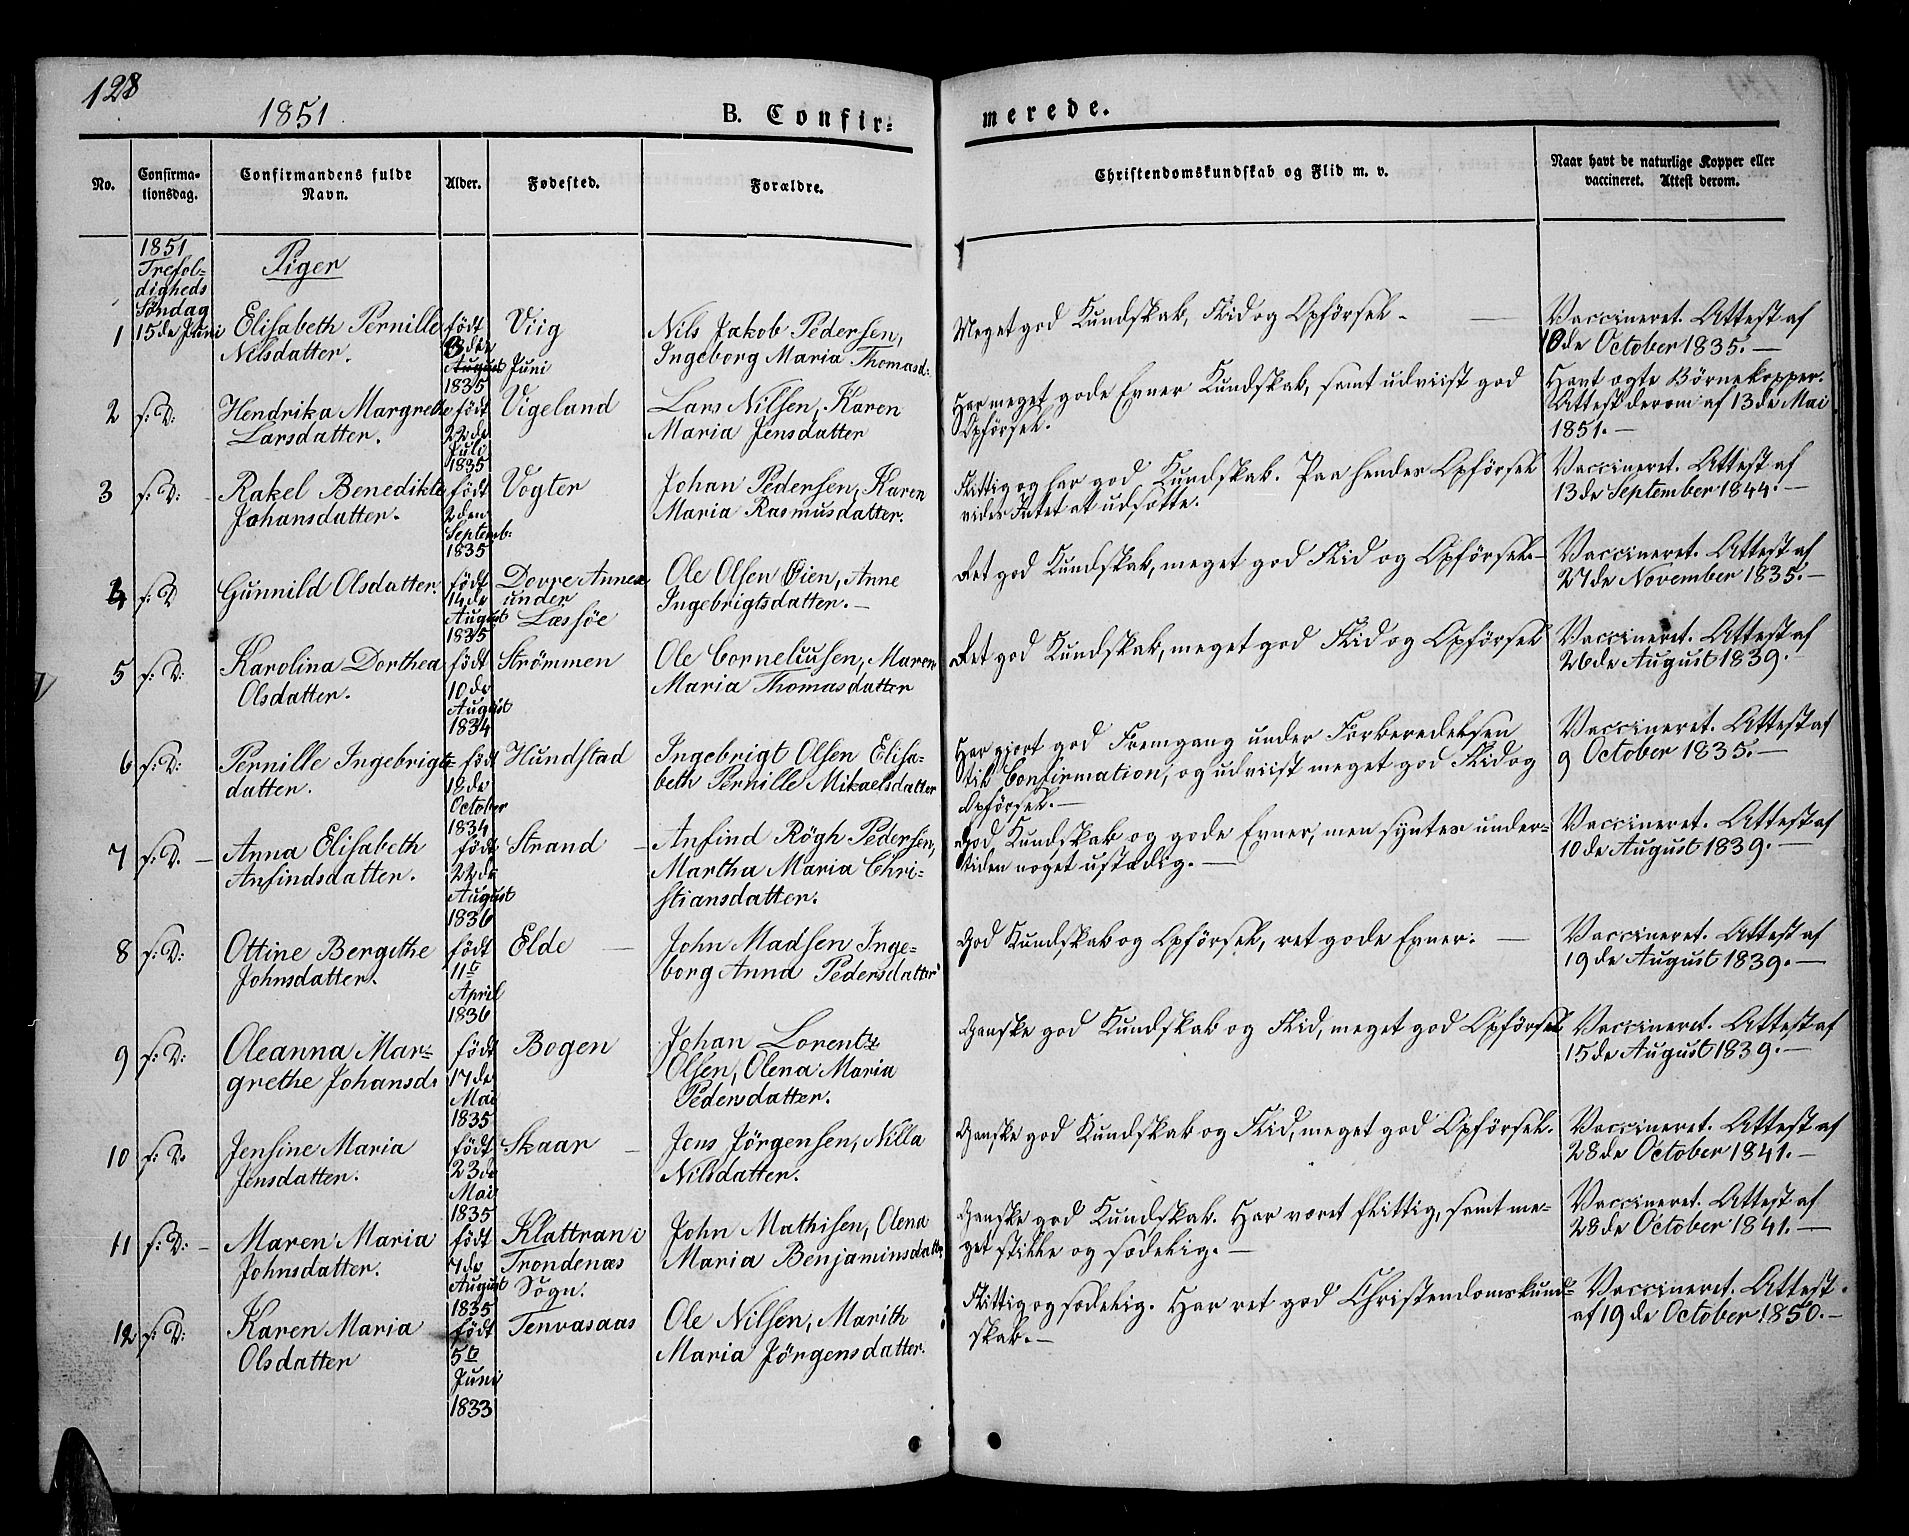 128
1851
B. Confir=
merede.
No.
Confirma-
tionsdag.
Confirmandens fulde
Navn.
Alder.
Fødested.
Forældre.
Christendomskundskab og Flid m. v.
Naar havt de naturlige Kopper eller
vaccineret. Attest derom.
1851
Trefol=
digheds
Søndag
Piger
1
15de Juni
Elisabeth Pernille
Nilsdatter.
født
8de
August Juni
1835
Viig
Nils Jakob Pedersen,
Ingeborg Maria Thomasd:
Meget god Kundskab, Flid og Opførsel. —
Vaccineret. Attest af
18de October 1835. —
2
f: D:
Hendrika Margrethe
Larsdatter.
født
22de
Juli
1835
Vigeland
Lars Nilsen, Karen
Maria Jensdatter
Har meget gode Evner Kundskab, samt udviist god
Opførsel.
Havt ægte Børnekopper.
Attest derom af 13de Mai
1851. —
3
f: D: -
Rakel Benedikte
Johansdatter.
født
2den
Septemb:
1835
Vogter
Johan Pedersen, Karen
Maria Rasmusdatter.
Flittig og har god Kundskab. Paa hendes Opførsel
vides Intet at udsætte.
Vaccineret. Attest af
13de September 1844. —
4
f: D
Gunnild Olsdatter.
født
14de
August
1835
Dovre Annex
under
Læssøe
Ole Olsen Øien, Anne
Ingebrigtsdatter. —
Ret god Kundskab, meget god Flid og Opførsel. —
Vaccineret. Attest af
27de November 1835. —
5
f: D:
Karolina Dorthea
Olsdatter.
født
10de
August
1834
Strømmen
Ole Corneliusen, Maren
Maria Thomasdatter
Ret god Kundskab, meget god Flid og Opførsel
Vaccineret. Attest af
26de August 1839. —
6
f: D:
Pernille Ingebrigts=
datter.
født
18de
October
1834
Hundstad
Ingebrigt Olsen Elisa-
beth Pernille Mikaelsdatter
Har gjort god Fremgang under Forberedelsen
til Confirmation, og udviist meget god Flid og
Opførsel. —
Vaccineret. Attest af
9 October 1835. —
7
f: D. —
Anna Elisabeth
Anfindsdatter.
født
22de
August
1836
Strand —
Anfind Røgh Pedersen,
Martha Maria Chri-
stiansdatter.
God Kundskab og gode Evner, men syntes under-
tiden noget ustadig. —
Vaccineret. Attest af
10de August 1839. —
8
f: D:
Ottine Bergithe
Johnsdatter.
født
11te
April
1836
Elde —
John Madsen Inge-
borg Anna Pedersdatter
God Kundskab og Opførsel, ret gode Evner. —
Vaccineret. Attest af
19de August 1839. —
9
f: D:
Oleanna Mar=
grethe Johansd:
født
17de
Mai
1835
Bogen
Johan Lorentz
Olsen, Olena Maria
Pedersdatter.
Ganske god Kundskab og Flid, meget god Opførsel.
Vaccineret. Attest af
15de August 1839. —
10
f: D.
Jensine Maria
Jensdatter.
født
23de
Mai
1835
Skaar —
Jens Jørgensen, Nilla
Nilsdatter.
Ganske god Kundskab og Flid, meget god Opførsel.
Vaccineret. Attest af
28de October 1841. —
11
f: D: -
Maren Maria
Johnsdatter.
født
7de
August
1835
Klattran i
Trondenæs
Sogn.
John Mathisen, Olena
Maria Benjaminsdatter
Ganske god Kundskab. Har været flittig, samt me-
get stille og sædelig. —
Vaccineret. Attest af
28de October 1841. —
12
f: D:
Karen Maria
Olsdatter
født
5te
Juni
1833
Tenvasaas
Ole Nilsen, Marith
Maria Jørgensdatter.
Flittig og sædelig. Har ret god Christendomskund-
skab. —
Vaccineret. Attest
af 19de October 1850. —